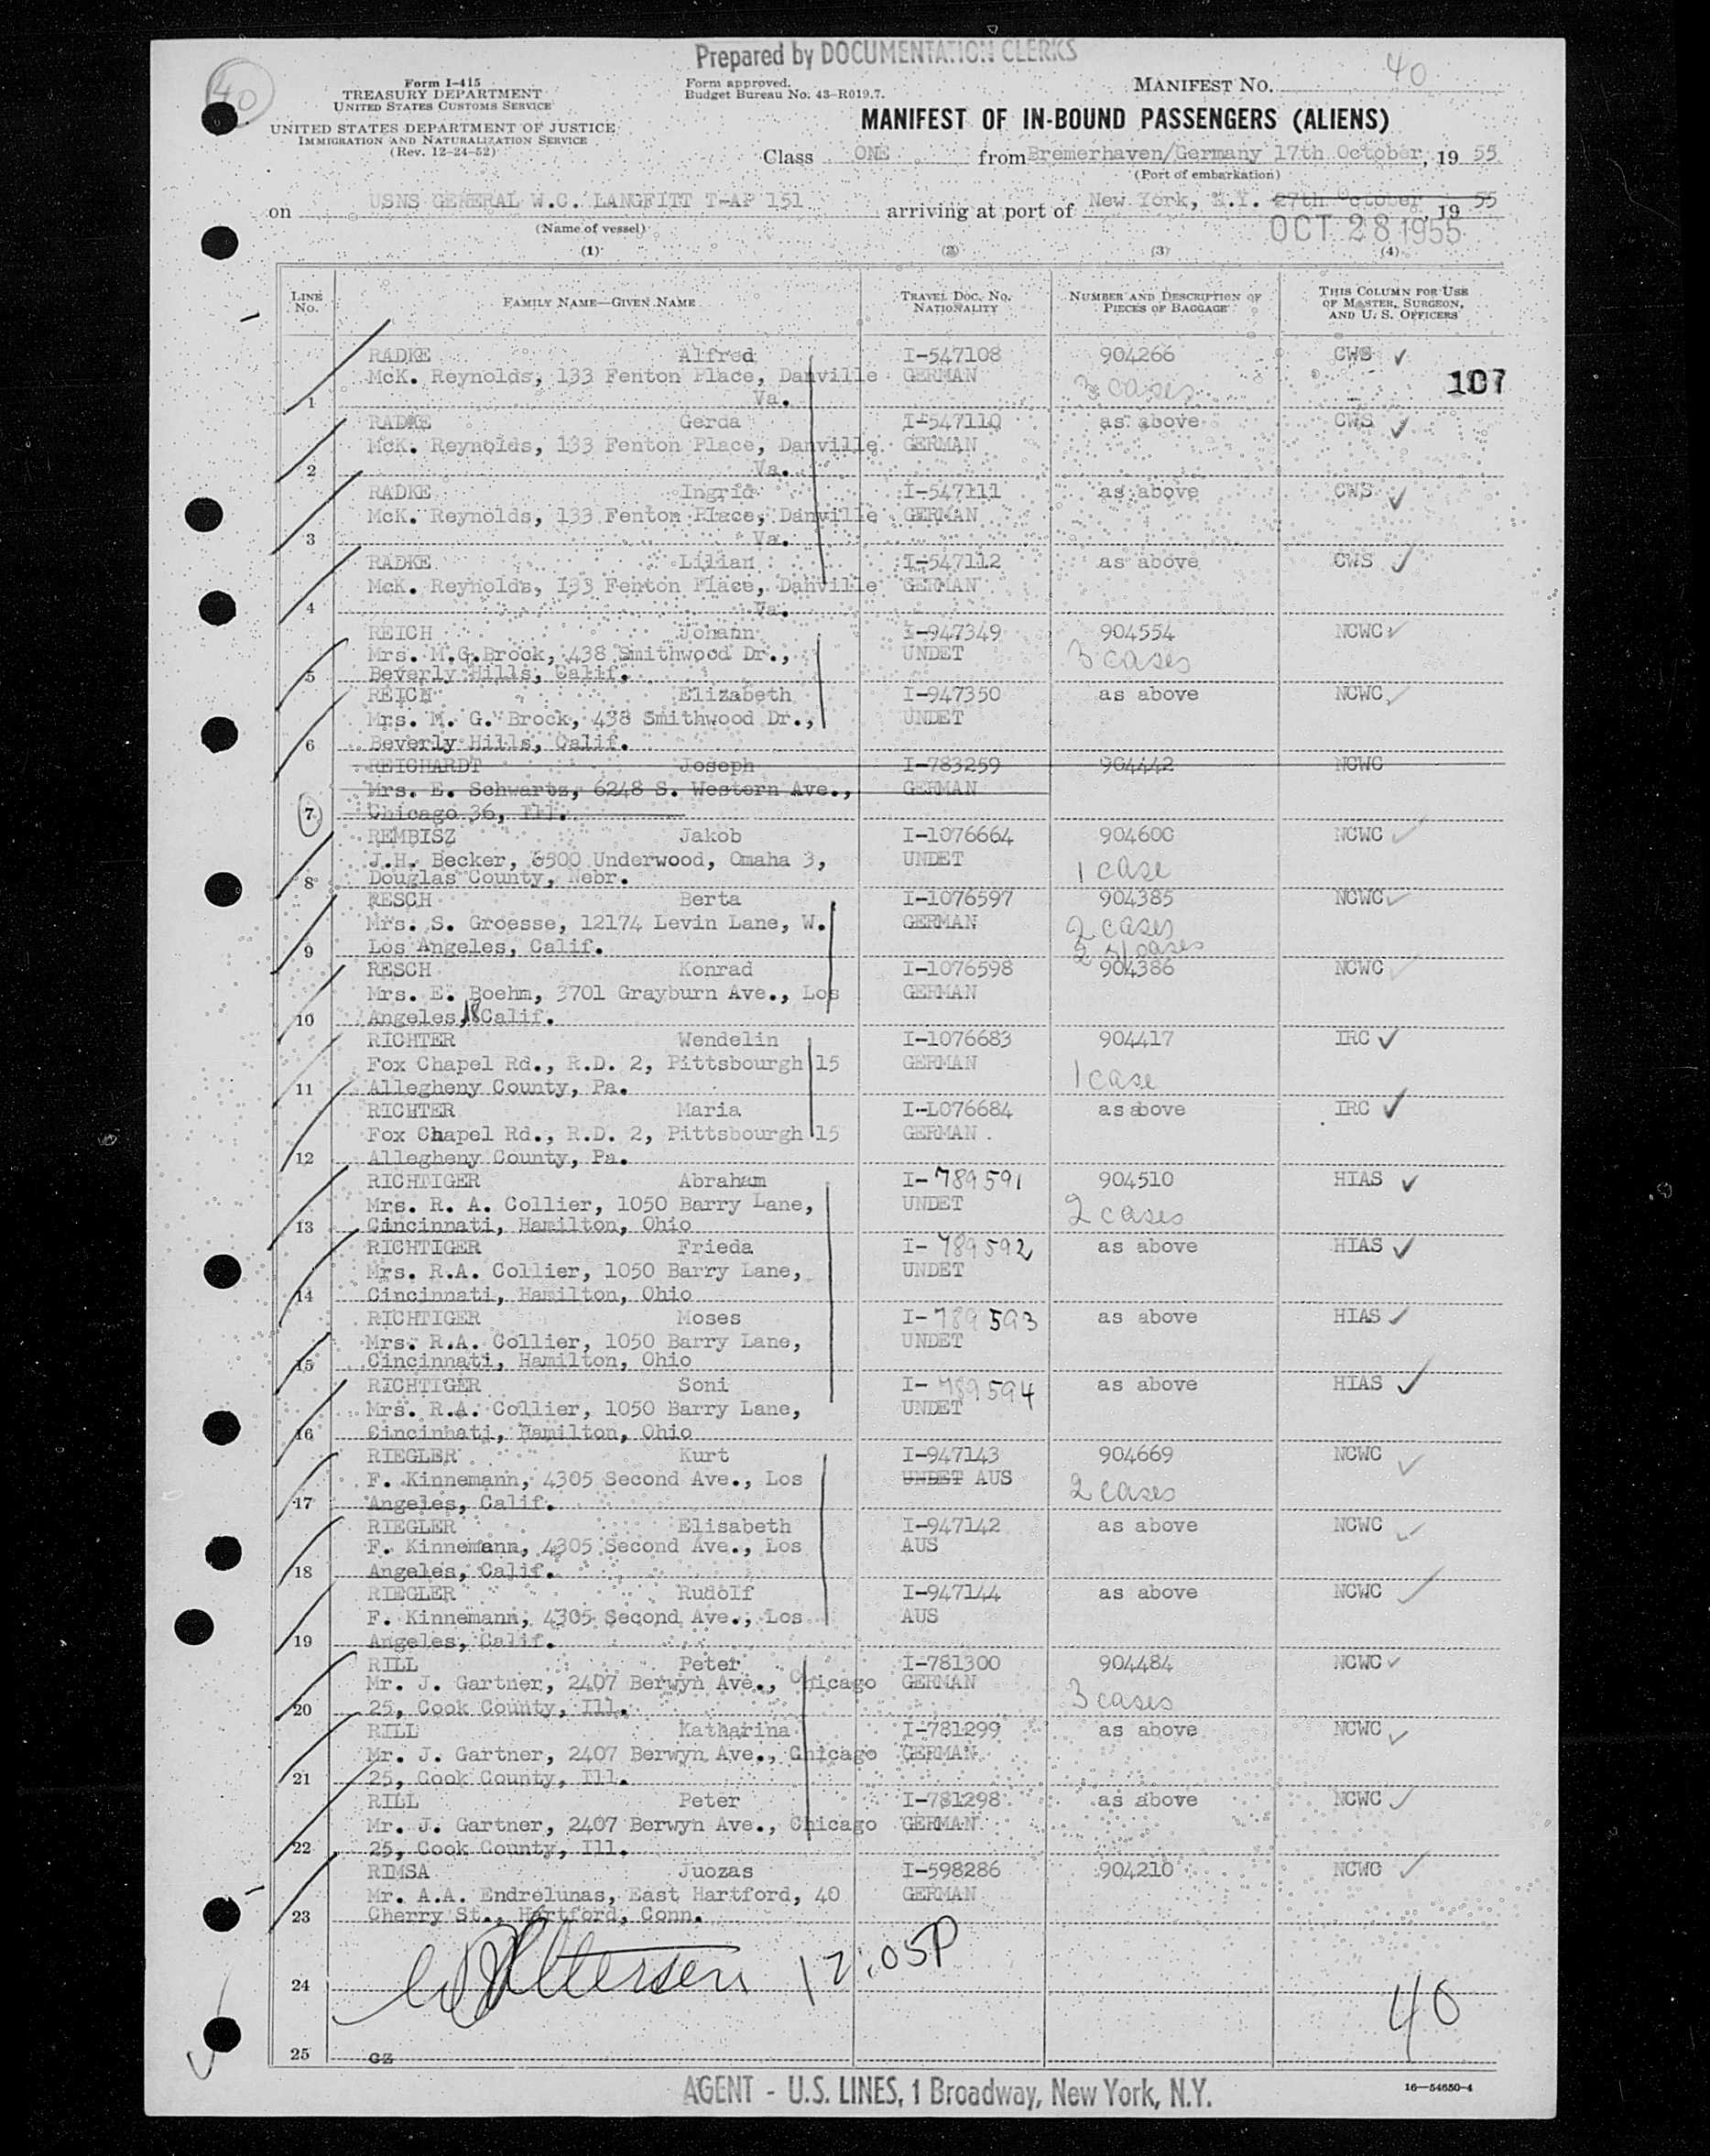 Prepared by DOCUMENTATION CLERKS
40
Form I-415
TREASURY DEPARTMENT
UNITED STATES CUSTOMS SERVICE
UNITED STATES DEPARTMENT OF JUSTICE
IMMIGRATION AND NATURALIZATION SERVICE
(Rev. 12-24-52)
Form approved.
Budget Bureau No. 43-R019.7.
MANIFEST NO. 40
MANIFEST OF IN-BOUND PASSENGERS (ALIENS)
Class ONE from Bremerhaven/Germany 17th October, 19 55
(Port of embarkation)
on USNS GENERAL W.C. LANGFITT T-AP 151 arriving at port of New York, N.Y. 27th October, 19 55
OCT 28 1955
(Name of vessel)
(1) (2) (3) (4)
LINE No. FAMILY NAME—GIVEN NAME TRAVEL DOC. NO. NATIONALITY NUMBER AND DESCRIPTION OF PIECES OF BAGGAGE THIS COLUMN FOR USE OF MASTER, SURGEON, AND U. S. OFFICERS
RADKE Alfred I-547108 904266 CWS ✓
McK. Reynolds, 133 Fenton Place, Danville GERMAN 3 cases 107
1 Va.
RADKE Gerda I-547110 as above CWS ✓
McK. Reynolds, 133 Fenton Place, Danville GERMAN
2 Va.
RADKE Ingrid I-547111 as above CWS ✓
McK. Reynolds, 133 Fenton Place, Danville GERMAN
3 Va.
RADKE Lilian I-547112 as above CWS ✓
McK. Reynolds, 133 Fenton Place, Danville GERMAN
4 Va.
REICH Johann I-947349 904554 NCWC ✓
Mrs. M.G.Brock, 438 Smithwood Dr., UNDET 3 cases
5 Beverly Hills, Calif.
REICH Elizabeth I-947350 as above NCWC ✓
Mrs. M. G. Brock, 438 Smithwood Dr., UNDET
6 Beverly Hills, Calif.
REICHARDT Joseph I-783259 904442 NCWC
Mrs. E. Schwartz, 6248 S. Western Ave., GERMAN
7 Chicago 36, Ill.
REMBISZ Jakob I-1076664 904600 NCWC ✓
J.H. Becker, 6500 Underwood, Omaha 3, UNDET 1 case
8 Douglas County, Nebr.
RESCH Berta I-1076597 904385 NCWC ✓
Mrs. S. Groesse, 12174 Levin Lane, W. GERMAN 2 cases
9 Los Angeles, Calif. cases
RESCH Konrad I-1076598 904386 NCWC ✓
Mrs. E. Boehm, 3701 Grayburn Ave., Los GERMAN
10 Angeles, 18 Calif.
RICHTER Wendelin I-1076683 904417 IRC ✓
Fox Chapel Rd., R.D. 2, Pittsbourgh 15 GERMAN 1 case
11 Allegheny County, Pa.
RICHTER Maria I-L076684 as above IRC ✓
Fox Chapel Rd., R.D. 2, Pittsbourgh 15 GERMAN
12 Allegheny County, Pa.
RICHTIGER Abraham I-789591 904510 HIAS ✓
Mrs. R. A. Collier, 1050 Barry Lane, UNDET 2 cases
13 Cincinnati, Hamilton, Ohio
RICHTIGER Frieda I-789592 as above HIAS ✓
Mrs. R.A. Collier, 1050 Barry Lane, UNDET
14 Cincinnati, Hamilton, Ohio
RICHTIGER Moses I-789593 as above HIAS ✓
Mrs. R.A. Collier, 1050 Barry Lane, UNDET
15 Cincinnati, Hamilton, Ohio
RICHTIGER Soni I-789594 as above HIAS ✓
Mrs. R.A. Collier, 1050 Barry Lane, UNDET
16 Cincinnati, Hamilton, Ohio
RIEGLER Kurt I-947143 904669 NCWC ✓
F. Kinnemann, 4305 Second Ave., Los UNDET AUS 2 cases
17 Angeles, Calif.
RIEGLER Elisabeth I-947142 as above NCWC ✓
F. Kinnemann, 4305 Second Ave., Los AUS
18 Angeles, Calif.
RIEGLER Rudolf I-947144 as above NCWC ✓
F. Kinnemann, 4305 Second Ave., Los AUS
19 Angeles, Calif.
RILL Peter I-781300 904484 NCWC ✓
Mr. J. Gartner, 2407 Berwyn Ave., Chicago GERMAN 3 cases
20 25, Cook County, Ill.
RILL Katharina I-781299 as above NCWC ✓
Mr. J. Gartner, 2407 Berwyn Ave., Chicago GERMAN
21 25, Cook County, Ill.
RILL Peter I-781298 as above NCWC ✓
Mr. J. Gartner, 2407 Berwyn Ave., Chicago GERMAN
22 25, Cook County, Ill.
RIMSA Juozas I-598286 904210 NCWC ✓
Mr. A.A. Endrelunas, East Hartford, 40 GERMAN
23 Cherry St., Hartford, Conn.
12:05P
24
40
25 cz
AGENT - U.S. LINES, 1 Broadway, New York, N.Y.
16—54650-4